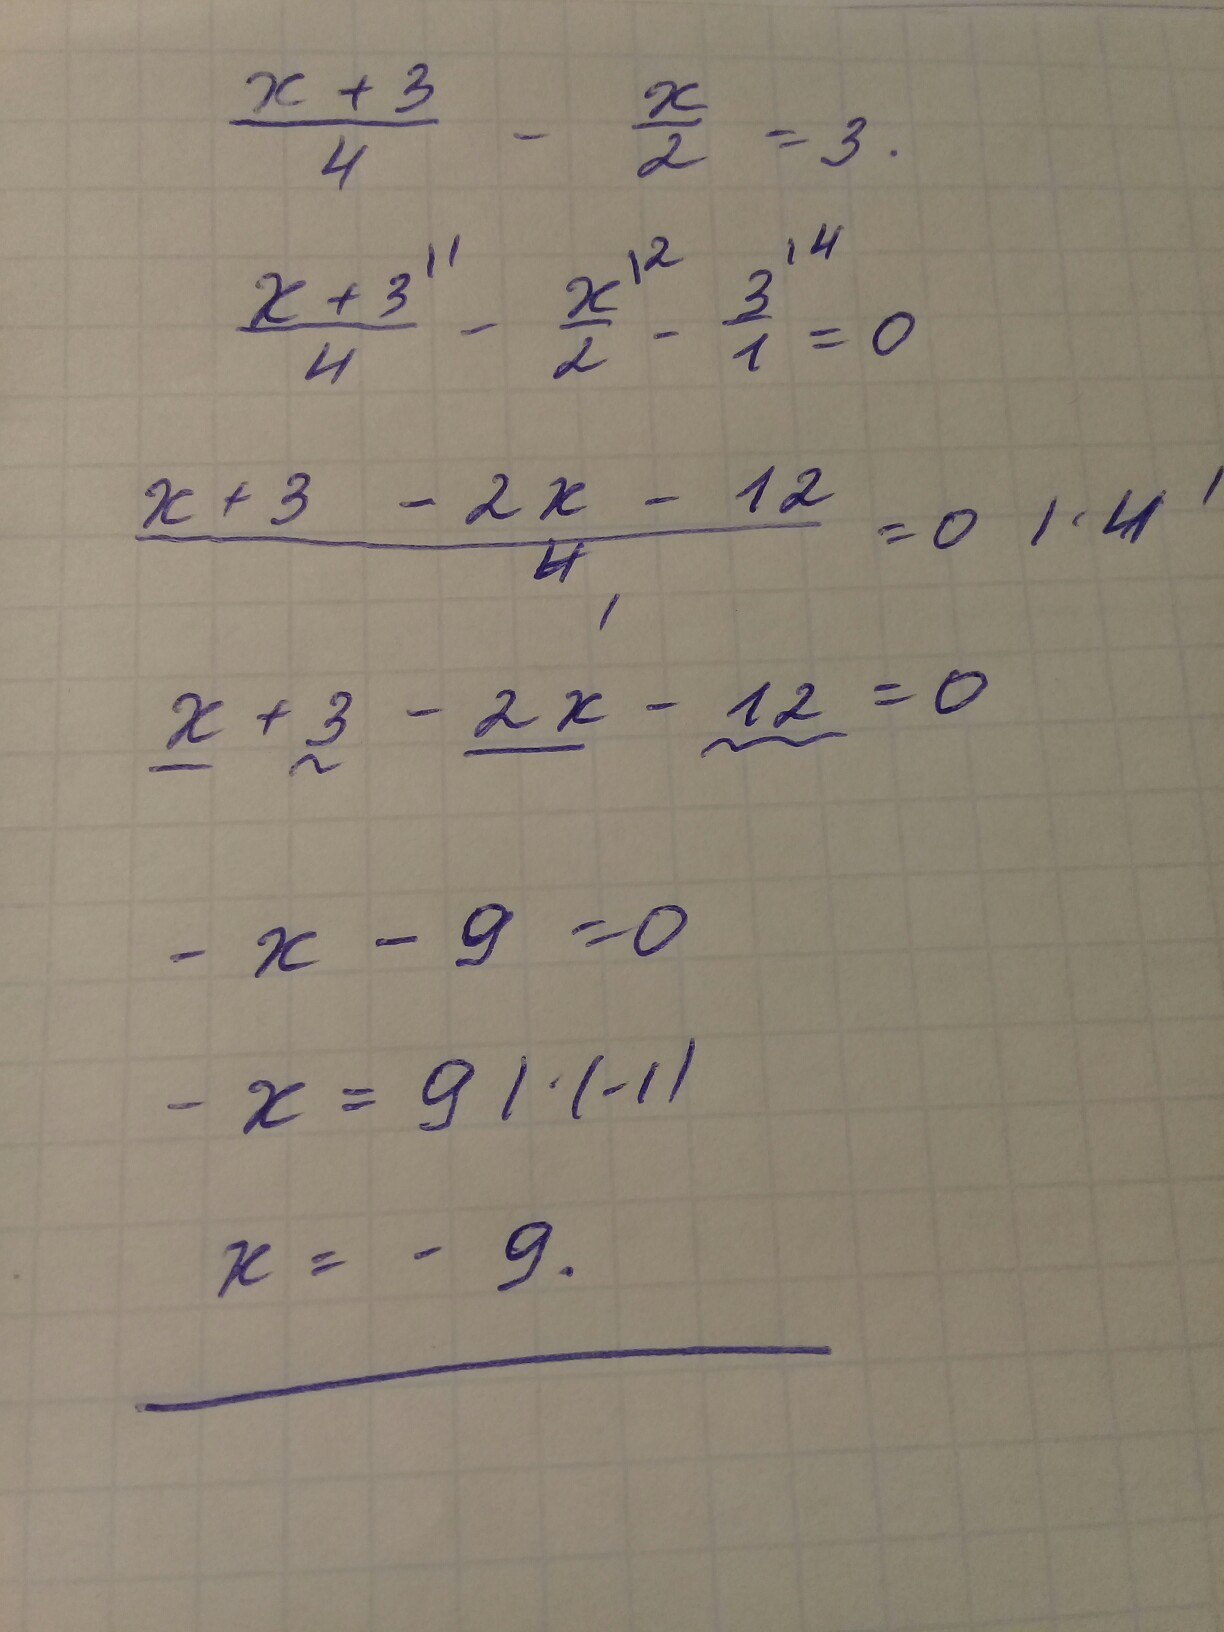 (x + 3)/4 - x/2 = 3.
(x + 3)/4 |1 - x/2 |2 - 3/1 |4 = 0
(x + 3 - 2x - 12)/4 = 0 | · 4
x + 3 - 2x - 12 = 0
- x - 9 = 0
- x = 9 | · (-1)
x = - 9.